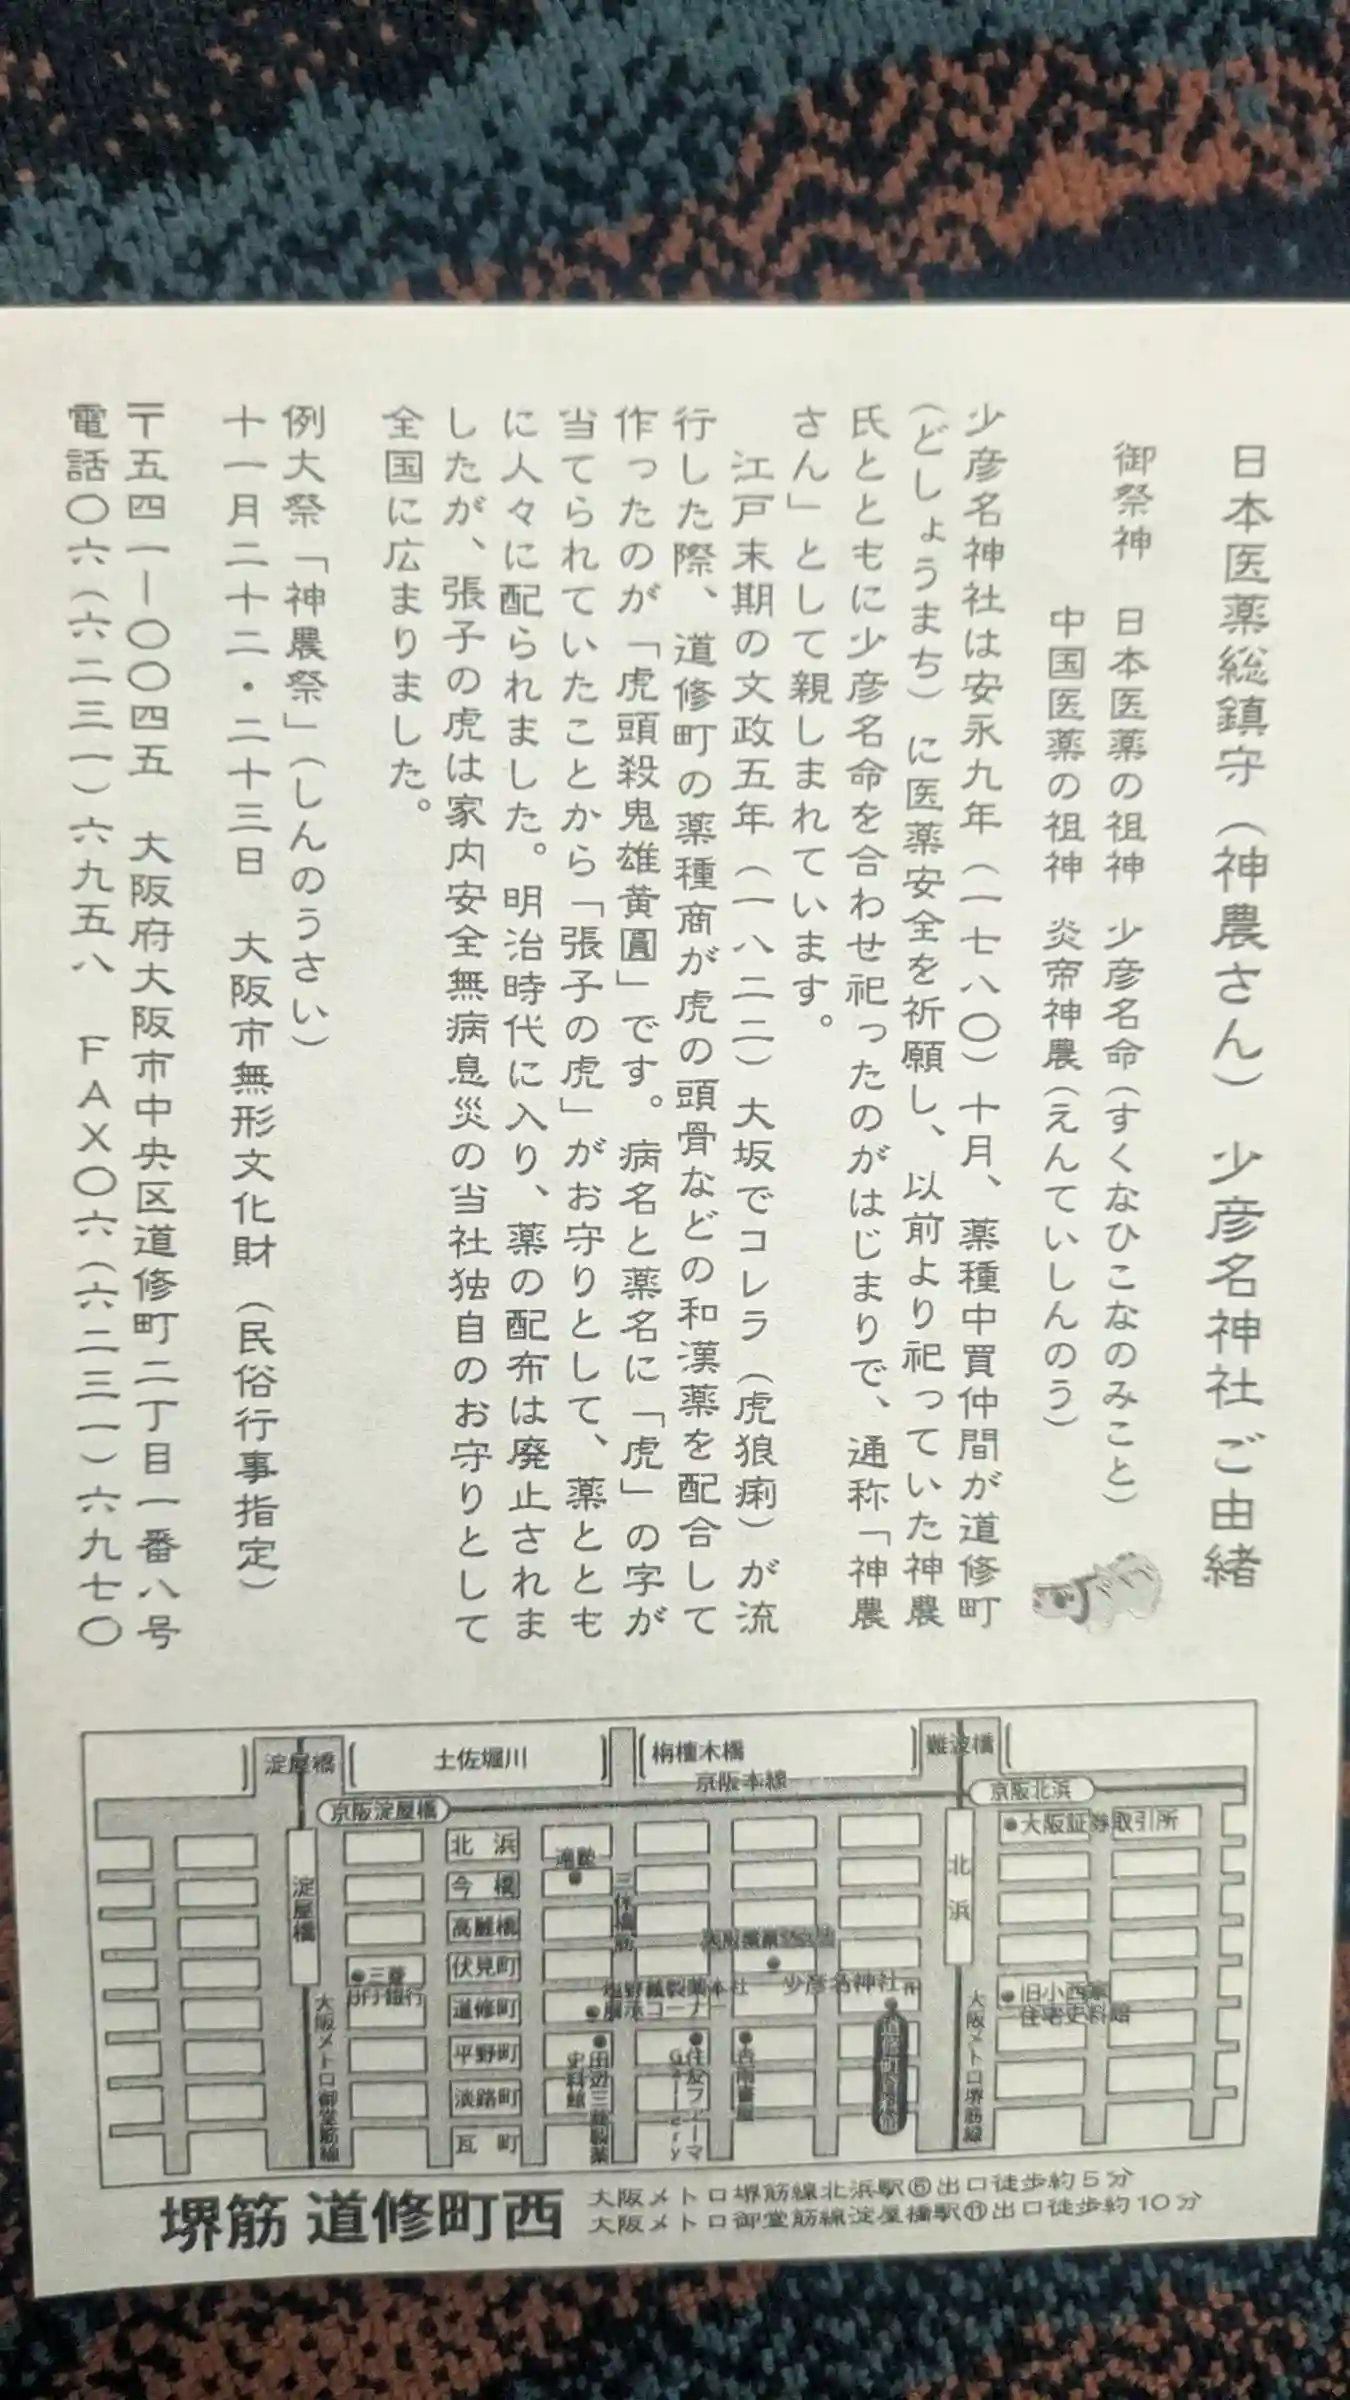 日本医薬総鎮守（神農さん）少彦名神社 ご由緒
御祭神　日本医薬の祖神　少彦名命（すくなひこなのみこと）
中国医薬の祖神　炎帝神農（えんていしんのう）
少彦名神社は安永九年（一七八〇）十月、薬種中買仲間が道修町
（どしょうまち）に医薬安全を祈願し、以前より祀っていた神農
氏とともに少彦名命を合わせ祀ったのがはじまりで、通称「神農
さん」として親しまれています。
江戸末期の文政五年（一八二二）大坂でコレラ（虎狼痢）が流
行した際、道修町の薬種商が虎の頭骨などの和漢薬を配合して
作ったのが「虎頭殺鬼雄黄圓」です。病名と薬名に「虎」の字が
当てられていたことから「張子の虎」がお守りとして、薬ととも
に人々に配られました。明治時代に入り、薬の配布は廃止されま
したが、張子の虎は家内安全無病息災の当社独自のお守りとして
全国に広まりました。
例大祭「神農祭」（しんのうさい）
十一月二十二・二十三日　大阪市無形文化財（民俗行事指定）
〒五四一－〇〇四五　大阪府大阪市中央区道修町二丁目一番八号
電話〇六（六二三一）六九五八　ＦＡＸ〇六（六二三一）六九七〇
淀屋橋
土佐堀川
栴檀木橋
難波橋
京阪本線
京阪淀屋橋
京阪北浜
大阪証券取引所
淀屋橋
北浜
北浜
今橋
高麗橋
伏見町
道修町
平野町
淡路町
瓦町
適塾
三休橋筋
三菱
UFJ銀行
少彦名神社
旧小西家
住宅史料館
田辺三菱製薬
史料館
住友ファーマ
Gallery
大阪メトロ御堂筋線
大阪メトロ堺筋線
堺筋 道修町西
大阪メトロ堺筋線北浜駅⑥出口徒歩約5分
大阪メトロ御堂筋線淀屋橋駅⑪出口徒歩約10分